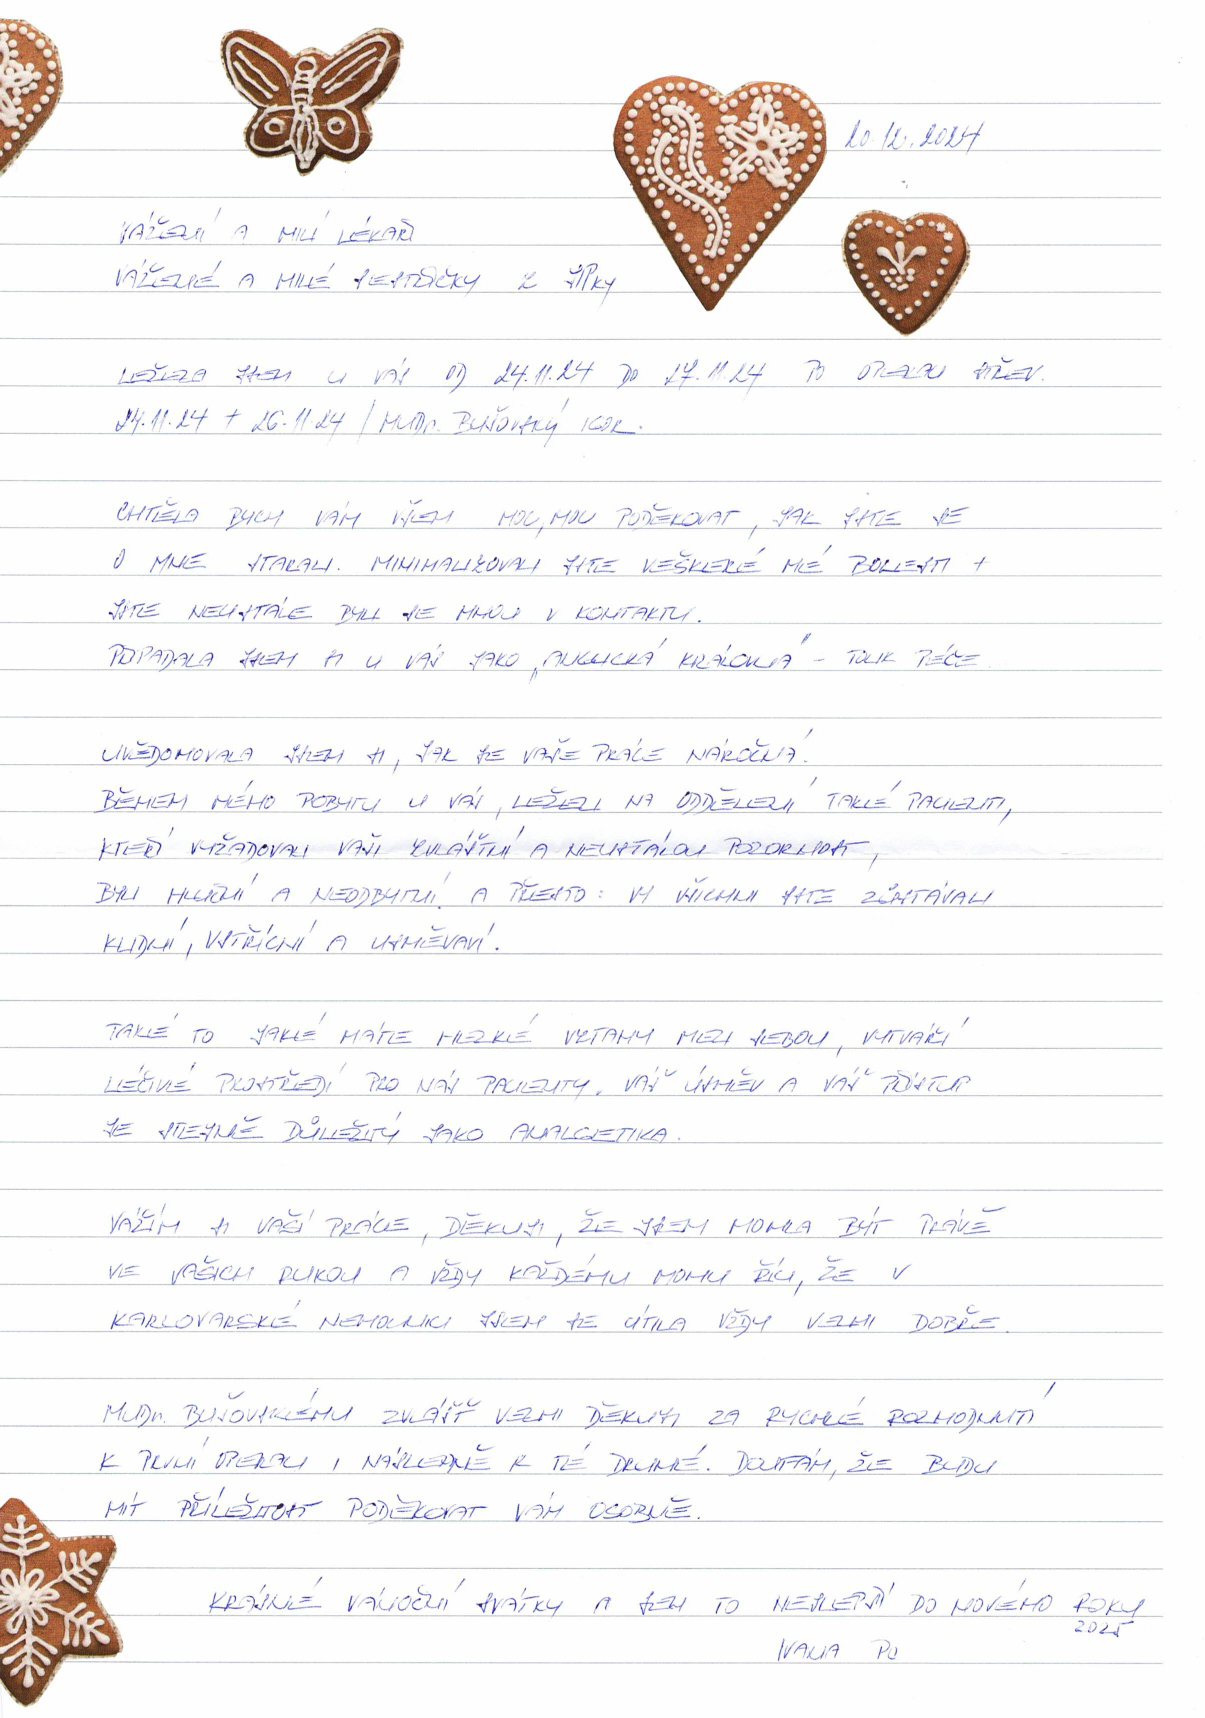 20.12.2024
VÁŽENÍ A MILÍ LÉKAŘI
VÁŽENÉ A MILÉ SESTŘIČKY Z JIPKY
LEŽELA JSEM U VÁS OD 24.11.24 DO 27.11.24 PO OPERACI STŘEV.
24.11.24 + 26.11.24 / MUDr. BUŠOVSKÝ IGOR.
CHTĚLA BYCH VÁM VŠEM MOC, MOC PODĚKOVAT, JAK JSTE SE
O MNE STARALI. MINIMALIZOVALI JSTE VEŠKERÉ MÉ BOLESTI +
JSTE NEUSTÁLE BYLI SE MNOU V KONTAKTU.
PŘIPADALA JSEM SI U VÁS JAKO „ANGLICKÁ KRÁLOVNA" - TOLIK PÉČE
UVĚDOMOVALA JSEM SI, JAK JE VAŠE PRÁCE NÁROČNÁ!
BĚHEM MÉHO POBYTU U VÁS, LEŽELI NA ODDĚLENÍ TAKÉ PACIENTI,
KTEŘÍ VYŽADOVALI VAŠI ZVLÁŠTNÍ A NEUSTÁLOU POZORNOST,
BYLI HLUČNÍ A NEODBYTNÍ A PŘESTO: VY VŠICHNI JSTE ZŮSTÁVALI
KLIDNÍ, VSTŘÍCNÍ A USMĚVAVÍ.
TAKÉ TO JAKÉ MÁTE HEZKÉ VZTAHY MEZI SEBOU, VYTVÁŘÍ
LÉČIVÉ PROSTŘEDÍ PRO NÁS PACIENTY. VÁŠ ÚSMĚV A VÁŠ PŘÍSTUP
JE STEJNĚ DŮLEŽITÝ JAKO ANALGETIKA.
VÁŽÍM SI VAŠÍ PRÁCE, DĚKUJI, ŽE JSEM MOHLA BÝT PRÁVĚ
VE VAŠICH RUKOU A VŽDY KAŽDÉMU MOHU ŘÍCI, ŽE V
KARLOVARSKÉ NEMOCNICI JSEM SE CÍTILA VŽDY VELMI DOBŘE.
MUDr. BUŠOVSKÉMU ZVLÁŠŤ VELMI DĚKUJI ZA RYCHLÉ ROZHODNUTÍ
K PRVNÍ OPERACI I NÁSLEDNĚ K TÉ DRUHÉ. DOUFÁM, ŽE BUDU
MÍT PŘÍLEŽITOST PODĚKOVAT VÁM OSOBNĚ.
KRÁSNÉ VÁNOČNÍ SVÁTKY A JEN TO NEJLEPŠÍ DO NOVÉHO ROKU
2025
IVANA PO